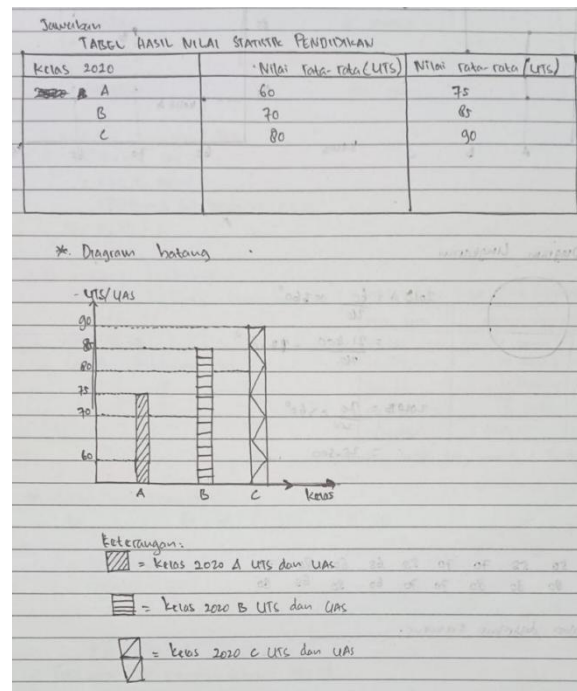 Jawaban
TABEL HASIL NILAI STATISTIK PENDIDIKAN
Kelas 2020 Nilai rata-rata (UTS) Nilai rata-rata (UTS)
A 60 75
B 70 85
C 80 90
*. Diagram batang
- UTS/UAS
90
85
80
75
70
60
A B C kelas
Keterangan:
= Kelas 2020 A UTS dan UAS
= Kelas 2020 B UTS dan UAS
= Kelas 2020 C UTS dan UAS